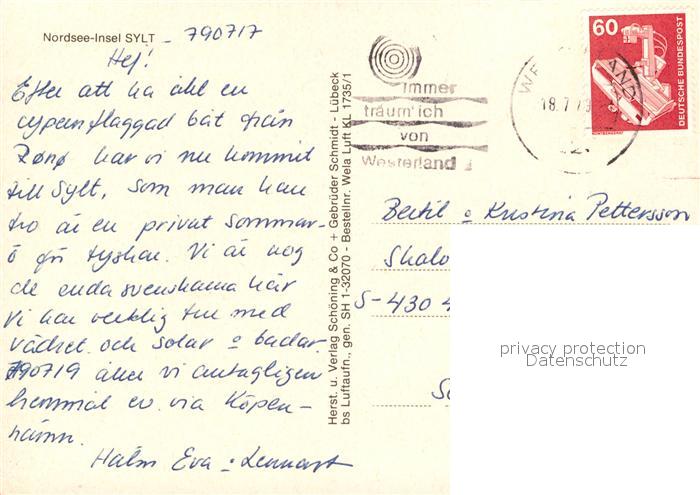 Nordsee-Insel SYLT - 790717
Hej!
Efter att ha åkt en
cypernflaggad båt från
Rømø har vi nu kommit
till Sylt, som man kan
tro är en privat sommar-
ö för tyskar. Vi är nog
de enda svenskarna här
Vi har verklig tur med
vädret och solar o badar.
790719 åker vi antagligen
hemmåt ev. via Köpen-
hamn.
Häln Eva o Lennart
Herst. u. Verlag Schöning & Co + Gebrüder Schmidt - Lübeck
bs Luftaufn., gen. SH 1-32070 - Bestellnr. Wela Luft KL 1735/1
immer
träum'ich
von
Westerland
18.7.79
60
DEUTSCHE BUNDESPOST
Bertil o Kristina Pettersson
S-430 4
privacy protection
Datenschutz